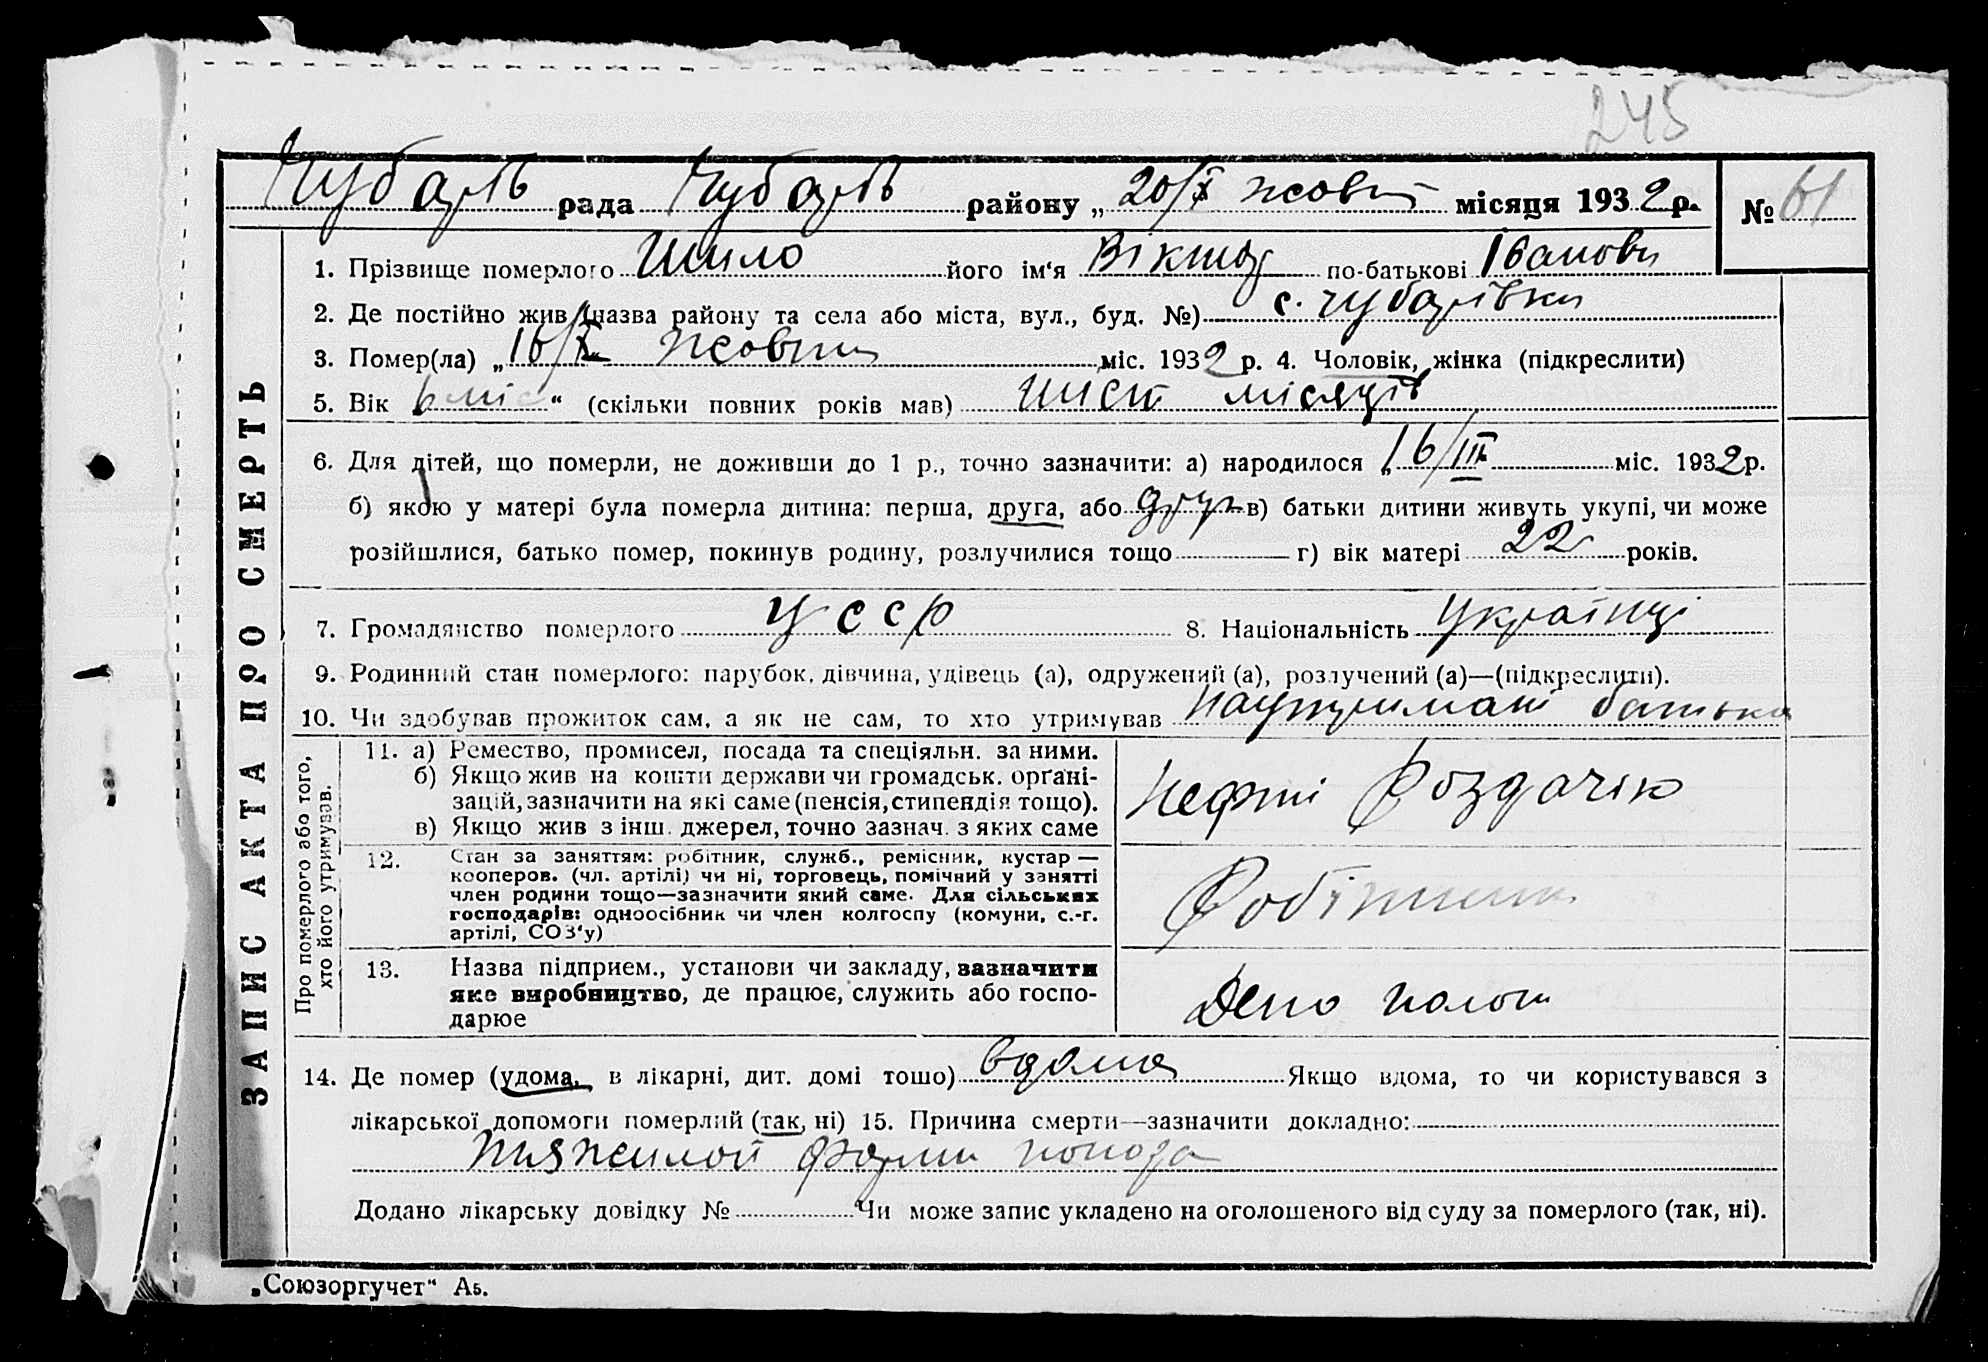 245
Чубарів рада Чубарів району „ 20/X жовт місяця 1932 р. № 61
ЗАПИС АКТА ПРО СМЕРТЬ
1. Прізвище померлого Шило його ім'я Віктор по-батькові Іванови
2. Де постійно жив (назва району та села або міста, вул., буд. №) с. Чубарівки
3. Помер(ла) „ 16/X „ жовтн міс. 1932 р. 4. Чоловік, жінка (підкреслити)
5. Вік 6 міс “ (скільки повних років мав) шість місяців
6. Для дітей, що померли, не доживши до 1 р., точно зазначити: а) народилося „ 16/III міс. 1932 р.
б) якою у матері була померла дитина: перша, друга, або друг в) батьки дитини живуть укупі, чи може
розійшлися, батько помер, покинув родину, розлучилися тощо г) вік матері 22 років.
7. Громадянство померлого УССР 8. Національність Українці
9. Родинний стан померлого: парубок, дівчина, удівець (а), одружений (а), розлучений (а)—(підкреслити).
10. Чи здобував прожиток сам, а як не сам, то хто утримував наутримані батька
Про померлого або того,
хто його утримував.
11. а) Ремество, промисел, посада та спеціяльн. за ними.
б) Якщо жив на кошти держави чи громадськ. орґані-
зацій, зазначити на які саме (пенсія, стипендія тощо).
в) Якщо жив з інш. джерел, точно зазнач. з яких саме
Нефті Роздачік
12. Стан за заняттям: робітник, служб., ремісник, кустар —
кооперов. (чл. артілі) чи ні, торговець, помічний у занятті
член родини тощо—зазначити який саме. Для сільських
господарів: одноосібник чи член колгоспу (комуни, с.-г.
артілі, СОЗ'у)
Робітник
13. Назва підприєм., установи чи закладу, зазначити
яке виробництво, де працює, служить або госпо-
дарюе
Депо
14. Де помер (удома, в лікарні, дит. домі тощо) вдома Якщо вдома, то чи користувався з
лікарської допомоги померлий (так, ні) 15. Причина смерти—зазначити докладно:
тяжилой форми
Додано лікарську довідку № Чи може запис укладено на оголошеного від суду за померлого (так, ні).
„Союзоргучет“ А5.